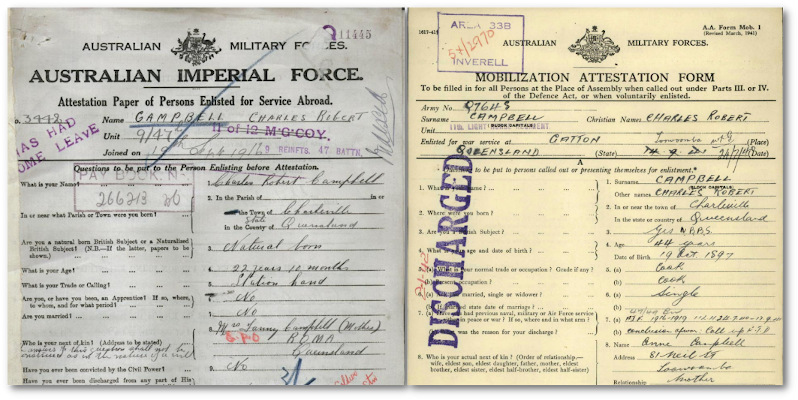 11445
AUSTRALIAN MILITARY FORCES.
AUSTRALIAN IMPERIAL FORCE.
Attestation Paper of Persons Enlisted for Service Abroad.
No. 3448 Name CAMPBELL CHARLES ROBERT
HAS HAD
HOME LEAVE
Unit 9/47th 11 of 12 M.G. COY.
Joined on 1916 9 REINFTS. 47 BATTN.
Questions to be put to the Person Enlisting before Attestation.
PAY BOOK ENT
266213
What is your Name? 1. Charles Robert Campbell
In or near what Parish or Town were you born? 2. In the Parish of in or
near the Town of Charleville
in the County of State Queensland
Are you a natural born British Subject or a Naturalised
British Subject? (N.B.—If the latter, papers to be
shown). 3. Natural born
What is your Age? 4. 22 years 10 months
What is your Trade or Calling? 5. Station hand
Are you, or have you been, an Apprentice? If so, where,
to whom, and for what period? No
Are you married? No
Who is your next of kin? (Address to be stated) Mrs Fanny Campbell (Mother)
G.P.O ROMA
Queensland
Have you ever been convicted by the Civil Power? 9. No
Have you ever been discharged from any part of His
AREA 33B
54/2970
INVERELL
A.A. Form Mob. 1
(Revised March, 1941)
AUSTRALIAN MILITARY FORCES.
MOBILIZATION ATTESTATION FORM
To be filled in for all Persons at the Place of Assembly when called out under Parts III. or IV.
of the Defence Act, or when voluntarily enlisted.
Army No. Q7648
Surname CAMPBELL Christian Names CHARLES ROBERT
BLOCK CAPITALS
Unit
Enlisted for war service at GATTON Toowoomba (Place)
QUEENSLAND (State) (Date)
A
Questions to be put to persons called out or presenting themselves for enlistment.
DISCHARGED
1. What is your name? 1. Surname CAMPBELL
BLOCK CAPITALS
Other names CHARLES ROBERT
2. Where were you born? 2. In or near the town of Charleville
in the state or country of Queensland
3. Are you a British Subject? 3. Yes NBBS
4. What is your age and date of birth? 4. Age 44 years
Date of Birth 19 Oct 1897
5. What is your normal trade or occupation? Grade if any? 5. (a) Cook
(b) Cook
6. Are you married, single or widower? 6. (a) Single
If married state date of marriages? (b)
7. Have you had previous naval, military or Air Force service
in peace or war? If so, where and in what arm? 7. (a) A.I.F. 1916-1919
What was the reason for your discharge? (b)
8. Who is your actual next of kin? (Order of relationship—
wife, eldest son, eldest daughter, father, mother, eldest
brother, eldest sister, eldest half-brother, eldest half-sister) 8. Name Anne Campbell
Address 81 Neil St
Toowoomba
Relationship Mother